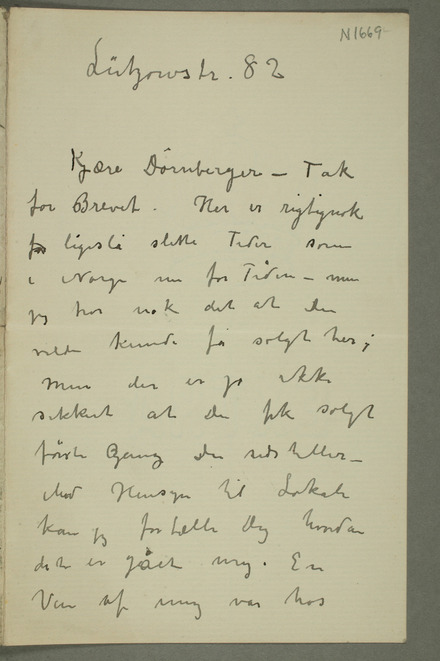 N1669
Lützowstr. 82
Kjære Dörnberger – Tak
for Brevet. Her er rigtignok
ligeså slette Tider som
i Norge nu for Tiden – men
jeg tror nok det at Du
vilde kunde få solgt her;
men der er jo ikke
sikkert at Du fik solgt
förste Gang Du udstiller –
Med Hensyn til Lokale
kan jeg fortælle Dig hvordan
det er gået mig. En
Ven af mig var hos